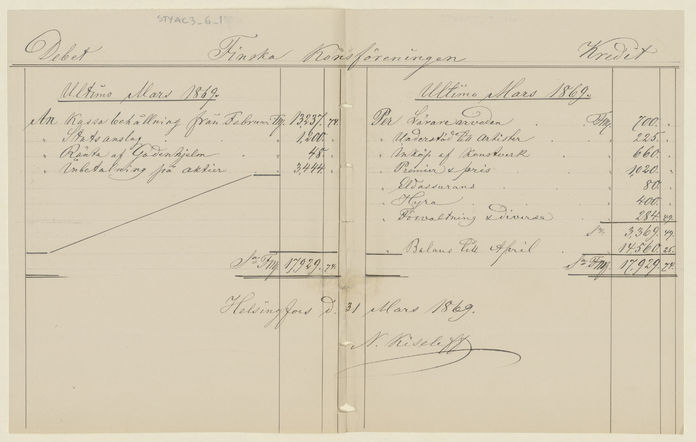 STYAC3_6_1
Debet Finska Konstföreningen Kredit
Ultimo Mars 1869.
An Kassa behållning från Februari Fmg 13,237. 74.
" Statsanslag " 1,200. "
" Ränta af Godenhjelm " 48. "
" Inbetalning på aktier 3,444. "
Sa Fmg. 17,929. 74.
Ultimo Mars 1869.
Per Lärarearvoden Fmg. 700. "
" Understöd till artister 225. "
" Inköp af konstverk 660. "
" Premier & pris 1,020. "
" Eldassurans 80. "
" Hyra 400. "
" Förvaltning & diverse 284. 49.
Sa 3,369. 49.
" Balans till April 14,560. 25.
Sa Fmg. 17,929. 74.
Helsingfors d. 31 Mars 1869.
N. Kiseleff